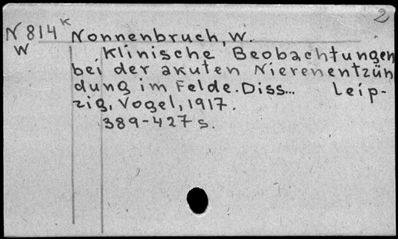 2
N 814 K Nonnenbruch, W.
W Klinische Beobachtungen
bei der akuten Nierenentzün
dung im Felde. Diss... Leip-
zig, Vogel, 1917.
389-427 s.